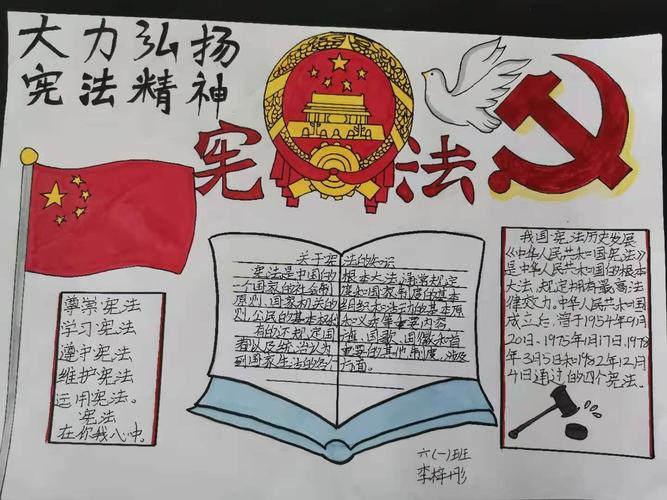 大力弘扬
宪法精神
宪法
尊崇宪法
学习宪法
遵守宪法
维护宪法
运用宪法。
宪法
在你我心中。
关于宪法的知识
宪法是中国的根本大法，通常规定
一个国家的社会制度和国家制度的基本
原则，国家机关的组织和活动的基本原
则，公民的基本权利和义务等重要内容，
有的还规定国旗、国歌、国徽和首
都以及统治阶级认为重要的其他制度，涉及
到国家生活的各个方面。
我国宪法历史发展
《中华人民共和国宪法》
是中华人民共和国的根本
大法，规定拥有最高法
律效力。中华人民共和国
成立后，曾于1954年9月
20日、1975年1月17日、1978
年3月5日和1982年12月
4日通过的四个宪法。
六(一)班
李梓彤